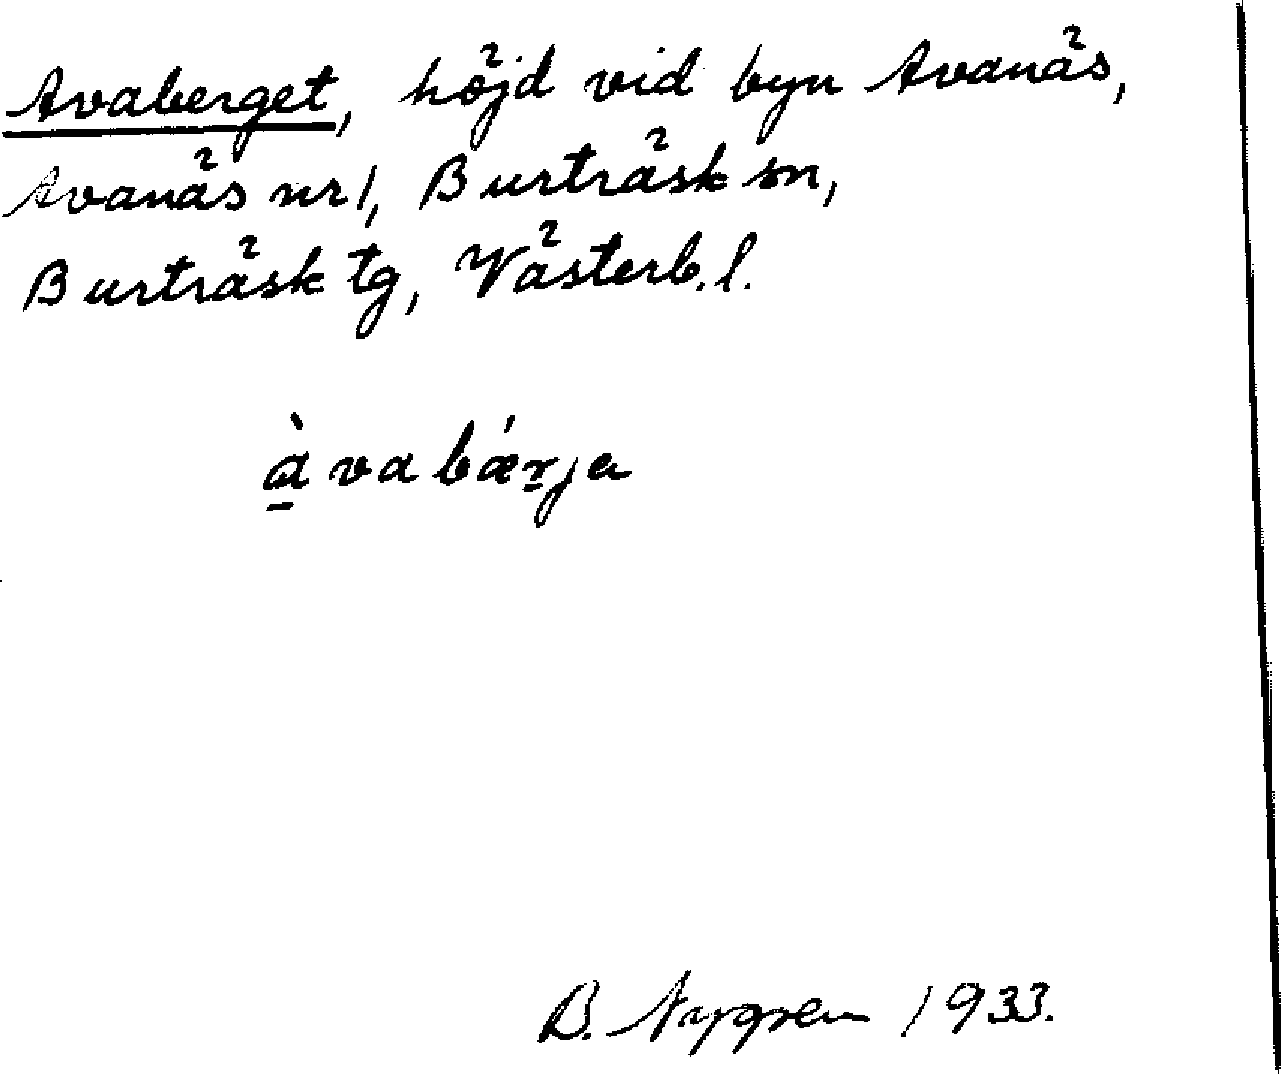 Avaberget, höjd vid byn Avanäs,
Avanäs nr 1, Burträsk sn,
Burträsk tg, Västerb. l.
à̱vabǽr̠ja
B. Nygren 1933.